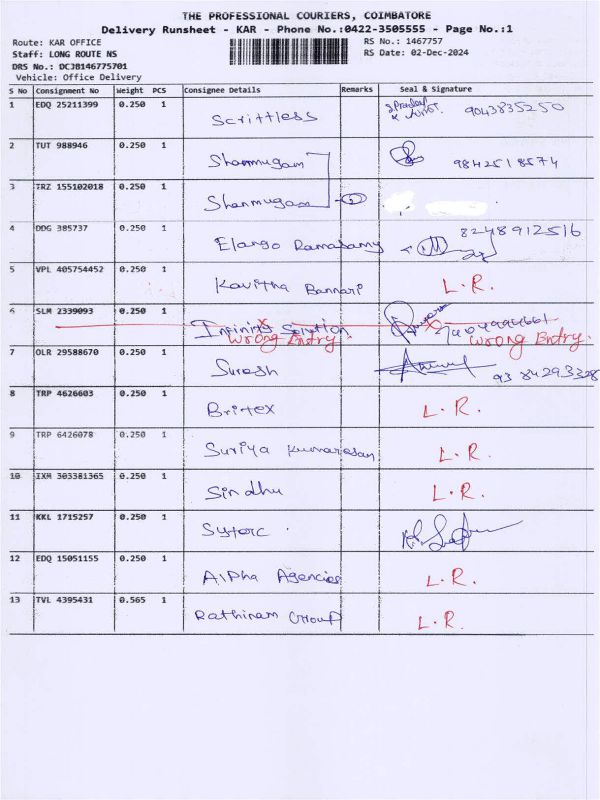 THE PROFESSIONAL COURIERS, COIMBATORE
Delivery Runsheet - KAR - Phone No.:0422-3505555 - Page No.:1
Route: KAR OFFICE RS No.: 1467757
Staff: LONG ROUTE NS RS Date: 02-Dec-2024
DRS No.: DCJB146775701
Vehicle: Office Delivery
S No Consignment No Weight PCS Consignee Details Remarks Seal & Signature
1 EDQ 25211399 0.250 1 Scrittless 9043835250
2 TUT 988946 0.250 1 Shanmugam 9842518574
3 TRZ 155102018 0.250 1 Shanmugam 2
4 DDG 385737 0.250 1 Elango Ramasamy 8248912516
5 VPL 405754452 0.250 1 Kavitha Bannari L.R.
6 SLM 2339093 0.250 1 Infinity Solution
Wrong Entry. Wrong Entry.
7 OLR 29588670 0.250 1 Suresh 9384293328
8 TRP 4626603 0.250 1 Britex L.R.
9 TRP 6426078 0.250 1 Suriya Kumaresan L.R.
10 IXM 303381365 0.250 1 Sindhu L.R.
11 KKL 1715257 0.250 1 Sytorc
12 EDQ 15051155 0.250 1 Alpha Agencies L.R.
13 TVL 4395431 0.565 1 Rathinam Group L.R.